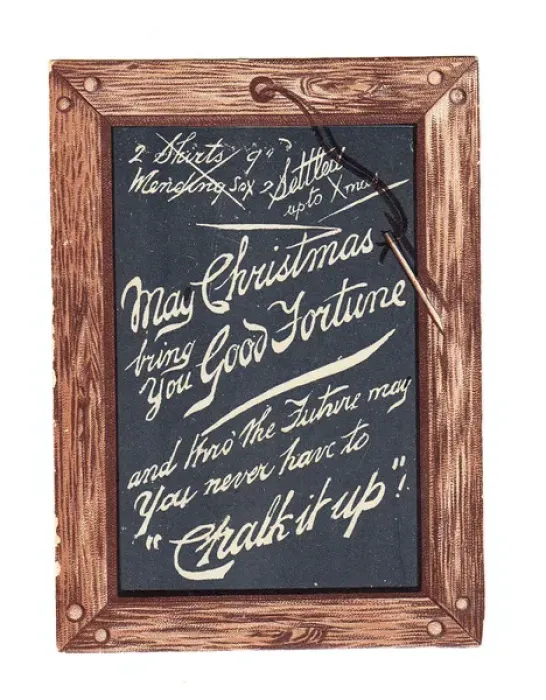 2 Shirts 9d
Mending Sox 2 Settled
up to Xmas
May Christmas
bring
You Good Fortune
and thro' the Future may
You never have to
"Chalk it up"!